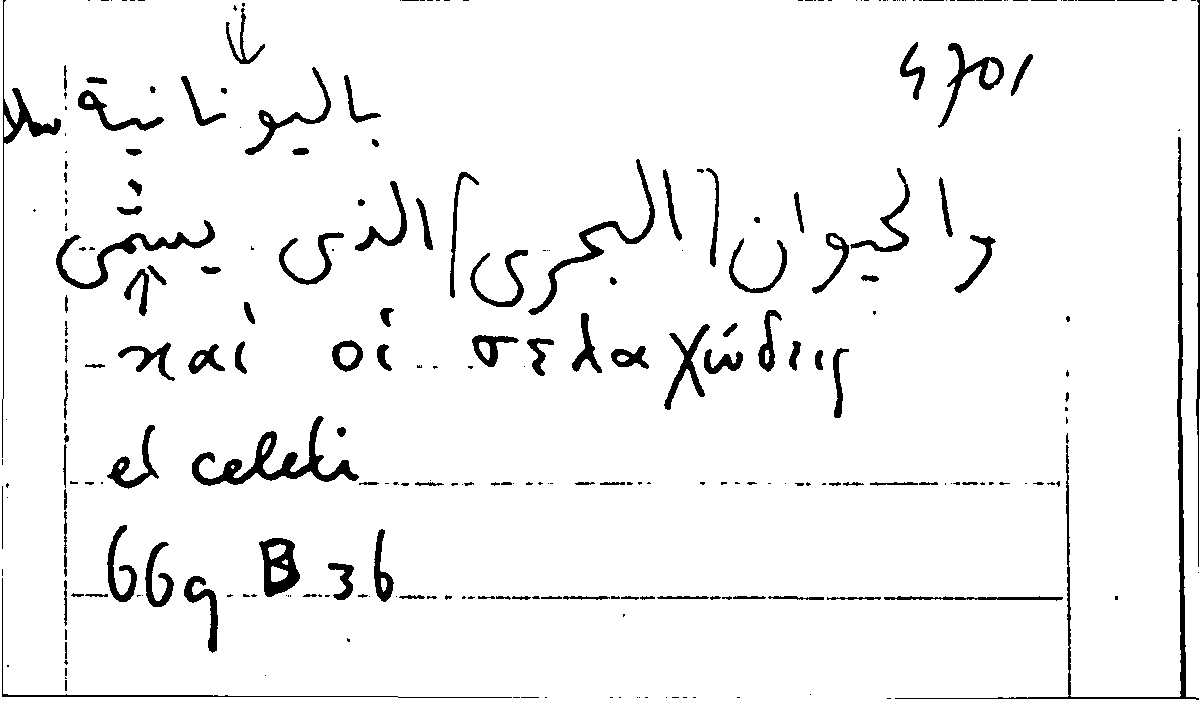 4701
باليونانية سلا
والحيوان [البحرى] الذى يسمى
καὶ οἱ σελαχώδεις
et celeti
669 B 36